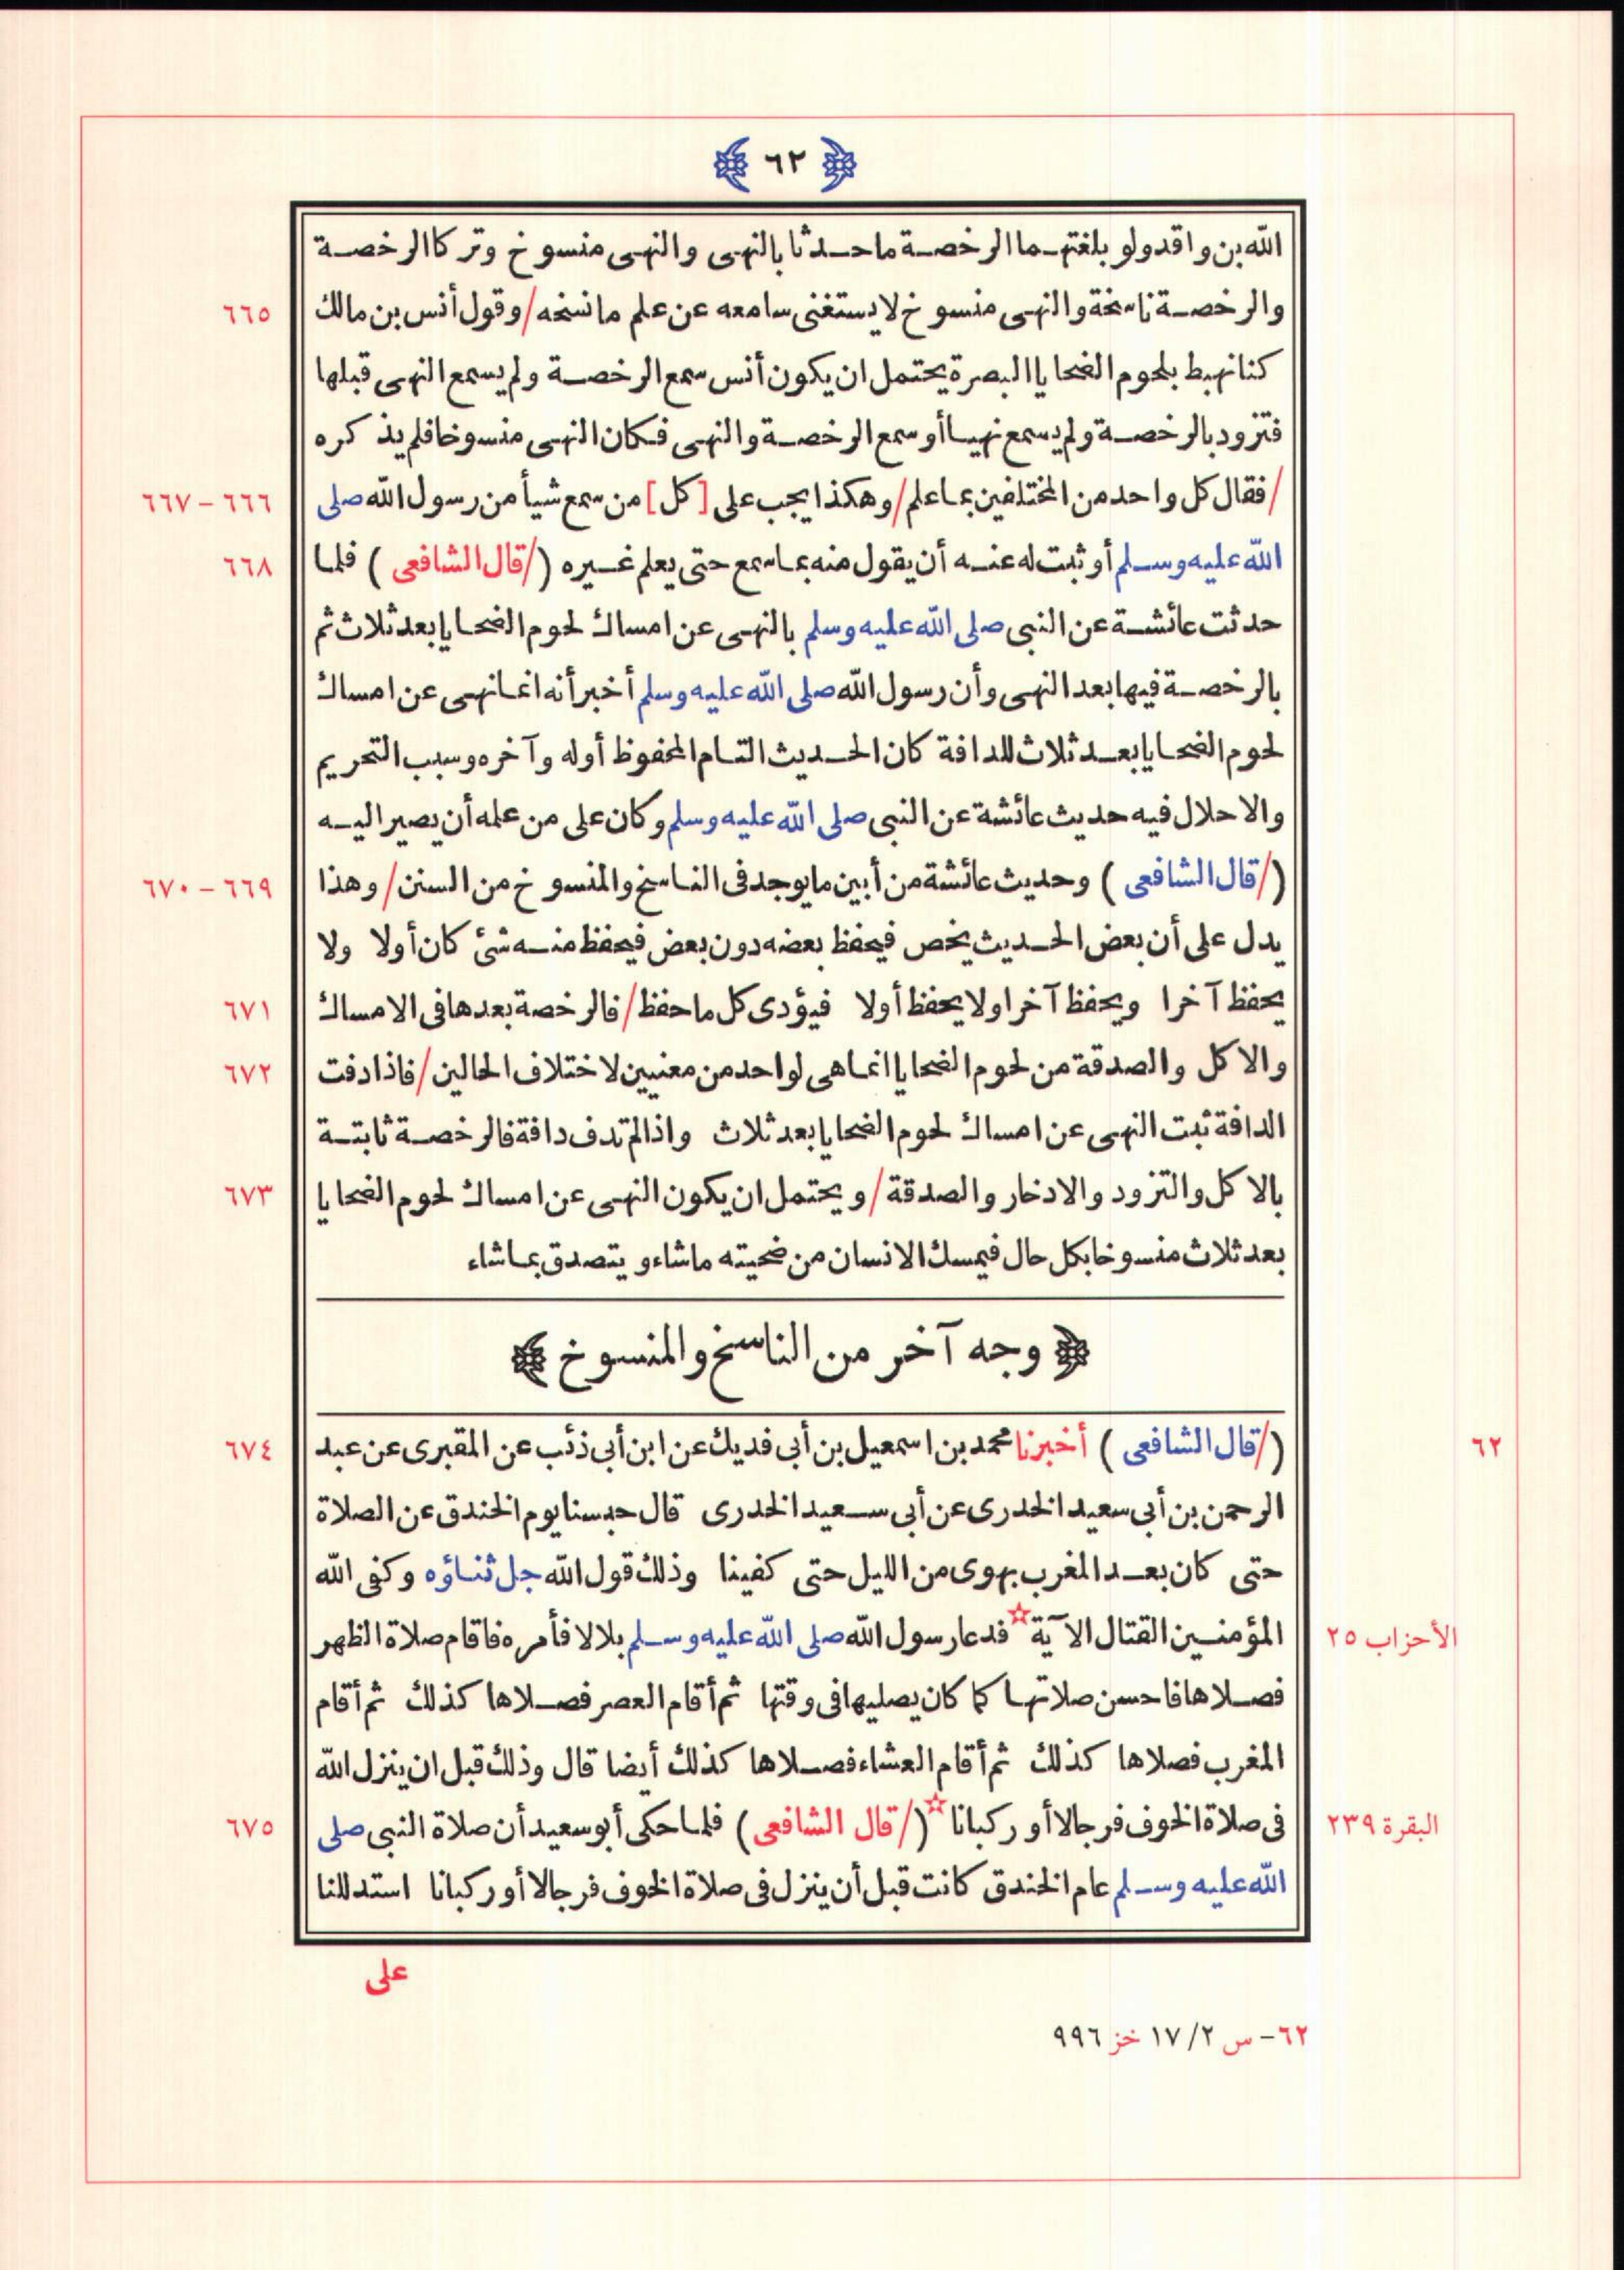 ٦٢
الله بن واقد ولو بلغتهما الرخصة ما حدثا بالنهى والنهى منسوخ وتركا الرخصة
والرخصة ناسخة والنهى منسوخ لا يستغنى سامعه عن علم ما نسخه / وقول أنس بن مالك ٦٦٥
كنا نهبط بلحوم الضحايا البصرة يحتمل ان يكون أنس سمع الرخصة ولم يسمع النهى قبلها
فتزود بالرخصة ولم يسمع نهيا أو سمع الرخصة والنهى فكان النهى منسوخا فلم يذكره
/ فقال كل واحد من المختلفين بما علم / وهكذا يجب على [كل] من سمع شيأ من رسول الله صلى ٦٦٦ - ٦٦٧
الله عليه وسلم أو ثبت له عنه أن يقول منه بما سمع حتى يعلم غيره (/ قال الشافعى ) فلما ٦٦٨
حدثت عائشة عن النبى صلى الله عليه وسلم بالنهى عن امساك لحوم الضحايا بعد ثلاث ثم
بالرخصة فيها بعد النهى وأن رسول الله صلى الله عليه وسلم أخبر أنه انما نهى عن امساك
لحوم الضحايا بعد ثلاث للدافة كان الحديث التام المحفوظ أوله وآخره وسبب التحريم
والاحلال فيه حديث عائشة عن النبى صلى الله عليه وسلم وكان على من علمه أن يصير اليه
(/ قال الشافعى ) وحديث عائشة من أبين ما يوجد فى الناسخ والمنسوخ من السنن / وهذا ٦٦٩ - ٦٧٠
يدل على أن بعض الحديث يخص فيحفظ بعضه دون بعض فيحفظ منه شئ كان أولا ولا
يحفظ آخرا ويحفظ آخرا ولا يحفظ أولا فيؤدى كل ما حفظ / فالرخصة بعدها فى الامساك ٦٧١
والاكل والصدقة من لحوم الضحايا انما هى لواحد من معنيين لاختلاف الحالين / فاذا دفت ٦٧٢
الدافة ثبت النهى عن امساك لحوم الضحايا بعد ثلاث واذا لم تدف دافة فالرخصة ثابتة
بالاكل والتزود والادخار والصدقة / ويحتمل ان يكون النهى عن امساك لحوم الضحايا ٦٧٣
بعد ثلاث منسوخا بكل حال فيمسك الانسان من ضحيته ما شاء ويتصدق بما شاء
وجه آخر من الناسخ والمنسوخ
٦٢ (/ قال الشافعى ) أخبرنا محمد بن اسمعيل بن أبى فديك عن ابن أبى ذئب عن المقبرى عن عبد ٦٧٤
الرحمن بن أبى سعيد الخدرى عن أبى سعيد الخدرى قال حبسنا يوم الخندق عن الصلاة
حتى كان بعد المغرب بهوى من الليل حتى كفينا وذلك قول الله جل ثناؤه وكفى الله
الأحزاب ٢٥ المؤمنين القتال الآية فدعا رسول الله صلى الله عليه وسلم بلالا فأمره فاقام صلاة الظهر
فصلاها فاحسن صلاتها كما كان يصليها فى وقتها ثم أقام العصر فصلاها كذلك ثم أقام
المغرب فصلاها كذلك ثم أقام العشاء فصلاها كذلك أيضا قال وذلك قبل ان ينزل الله
البقرة ٢٣٩ فى صلاة الخوف فرجالا أو ركبانا (/ قال الشافعى ) فلما حكى أبو سعيد أن صلاة النبى صلى ٦٧٥
الله عليه وسلم عام الخندق كانت قبل أن ينزل فى صلاة الخوف فرجالا أو ركبانا استدللنا
على
٦٢ - س ٢/ ١٧ خز ٩٩٦